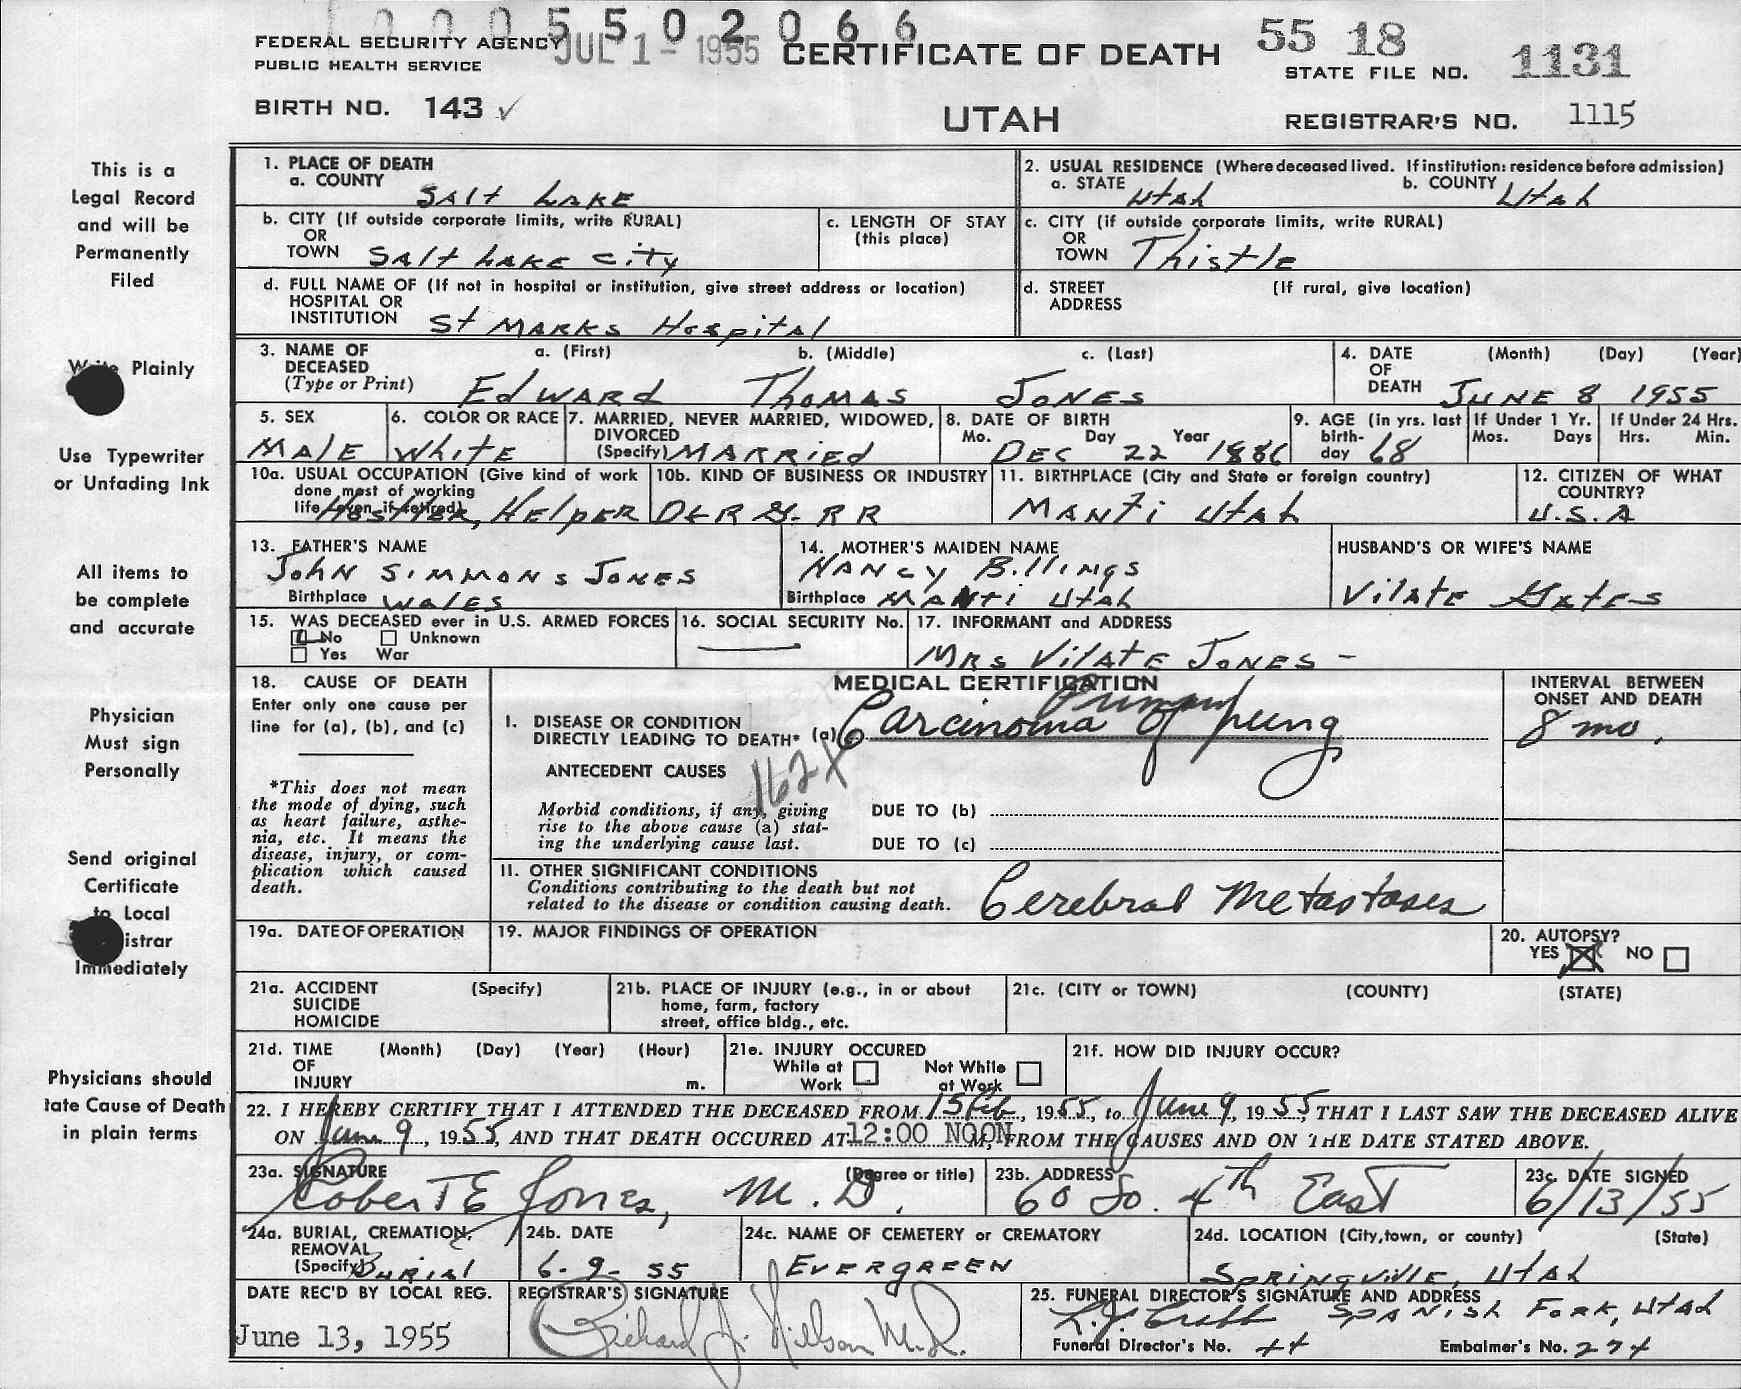 1000 5 5 0 2 0 6 6
FEDERAL SECURITY AGENCY JUL 1 - 1955 CERTIFICATE OF DEATH 55 18
PUBLIC HEALTH SERVICE STATE FILE NO. 1131
BIRTH NO. 143 ✓ UTAH REGISTRAR'S NO. 1115
This is a
Legal Record
and will be
Permanently
Filed
Write Plainly
Use Typewriter
or Unfading Ink
All items to
be complete
and accurate
Physician
Must sign
Personally
Send original
Certificate
to Local
istrar
Immediately
Physicians should
tate Cause of Death
in plain terms
1. PLACE OF DEATH
a. COUNTY Salt Lake
2. USUAL RESIDENCE (Where deceased lived. If institution: residence before admission)
a. STATE Utah b. COUNTY Utah
b. CITY (If outside corporate limits, write RURAL)
OR
TOWN Salt Lake City
c. LENGTH OF STAY
(this place)
c. CITY (if outside corporate limits, write RURAL)
OR
TOWN Thistle
d. FULL NAME OF (If not in hospital or institution, give street address or location)
HOSPITAL OR
INSTITUTION St Marks Hospital
d. STREET (If rural, give location)
ADDRESS
3. NAME OF DECEASED (Type or Print)
a. (First) b. (Middle) c. (Last)
Edward Thomas Jones
4. DATE OF DEATH (Month) (Day) (Year)
June 8 1955
5. SEX
Male
6. COLOR OR RACE
White
7. MARRIED, NEVER MARRIED, WIDOWED,
DIVORCED
(Specify) Married
8. DATE OF BIRTH
Mo. Day Year
Dec 22 1886
9. AGE (in yrs. last
birth-
day 68
If Under 1 Yr.
Mos. Days
If Under 24 Hrs.
Hrs. Min.
10a. USUAL OCCUPATION (Give kind of work
done most of working
life, even if retired)
Hostler, Helper
10b. KIND OF BUSINESS OR INDUSTRY
D&R G. RR
11. BIRTHPLACE (City and State or foreign country)
Manti Utah
12. CITIZEN OF WHAT
COUNTRY?
U.S.A
13. FATHER'S NAME
John Simmons Jones
Birthplace Wales
14. MOTHER'S MAIDEN NAME
Nancy Billings
Birthplace Manti Utah
HUSBAND'S OR WIFE'S NAME
Vilate Gates
15. WAS DECEASED ever in U.S. ARMED FORCES
No Unknown
Yes War
16. SOCIAL SECURITY No.
17. INFORMANT and ADDRESS
Mrs Vilate Jones -
18. CAUSE OF DEATH
Enter only one cause per
line for (a), (b), and (c)
*This does not mean
the mode of dying, such
as heart failure, asthe-
nia, etc. It means the
disease, injury, or com-
plication which caused
death.
MEDICAL CERTIFICATION
I. DISEASE OR CONDITION
DIRECTLY LEADING TO DEATH* (a) Carcinoma of Lung
Primary
162X
ANTECEDENT CAUSES
Morbid conditions, if any, giving
rise to the above cause (a) stat-
ing the underlying cause last.
DUE TO (b)
DUE TO (c)
INTERVAL BETWEEN
ONSET AND DEATH
8 mo.
II. OTHER SIGNIFICANT CONDITIONS
Conditions contributing to the death but not
related to the disease or condition causing death.
Cerebral Metastases
19a. DATE OF OPERATION
19. MAJOR FINDINGS OF OPERATION
20. AUTOPSY?
YES X NO
21a. ACCIDENT (Specify)
SUICIDE
HOMICIDE
21b. PLACE OF INJURY (e.g., in or about
home, farm, factory
street, office bldg., etc.
21c. (CITY or TOWN) (COUNTY) (STATE)
21d. TIME (Month) (Day) (Year) (Hour)
OF
INJURY m.
21e. INJURY OCCURED
While at Work
Not While at Work
21f. HOW DID INJURY OCCUR?
22. I HEREBY CERTIFY THAT I ATTENDED THE DECEASED FROM 15 Feb, 1955, to June 9, 1955, THAT I LAST SAW THE DECEASED ALIVE
ON June 9, 1955, AND THAT DEATH OCCURED AT 12:00 NOON M, FROM THE CAUSES AND ON THE DATE STATED ABOVE.
23a. SIGNATURE (Degree or title)
Robert E Jones, M.D.
23b. ADDRESS
60 So. 4th East
23c. DATE SIGNED
6/13/55
24a. BURIAL, CREMATION,
REMOVAL
(Specify) Burial
24b. DATE
6-9-55
24c. NAME OF CEMETERY or CREMATORY
Evergreen
24d. LOCATION (City, town, or county) (State)
Springville, Utah
DATE REC'D BY LOCAL REG.
June 13, 1955
REGISTRAR'S SIGNATURE
Richard J. Nilson M.D.
25. FUNERAL DIRECTOR'S SIGNATURE AND ADDRESS
Spanish Fork, Utah
Funeral Director's No. 44 Embalmer's No. 274